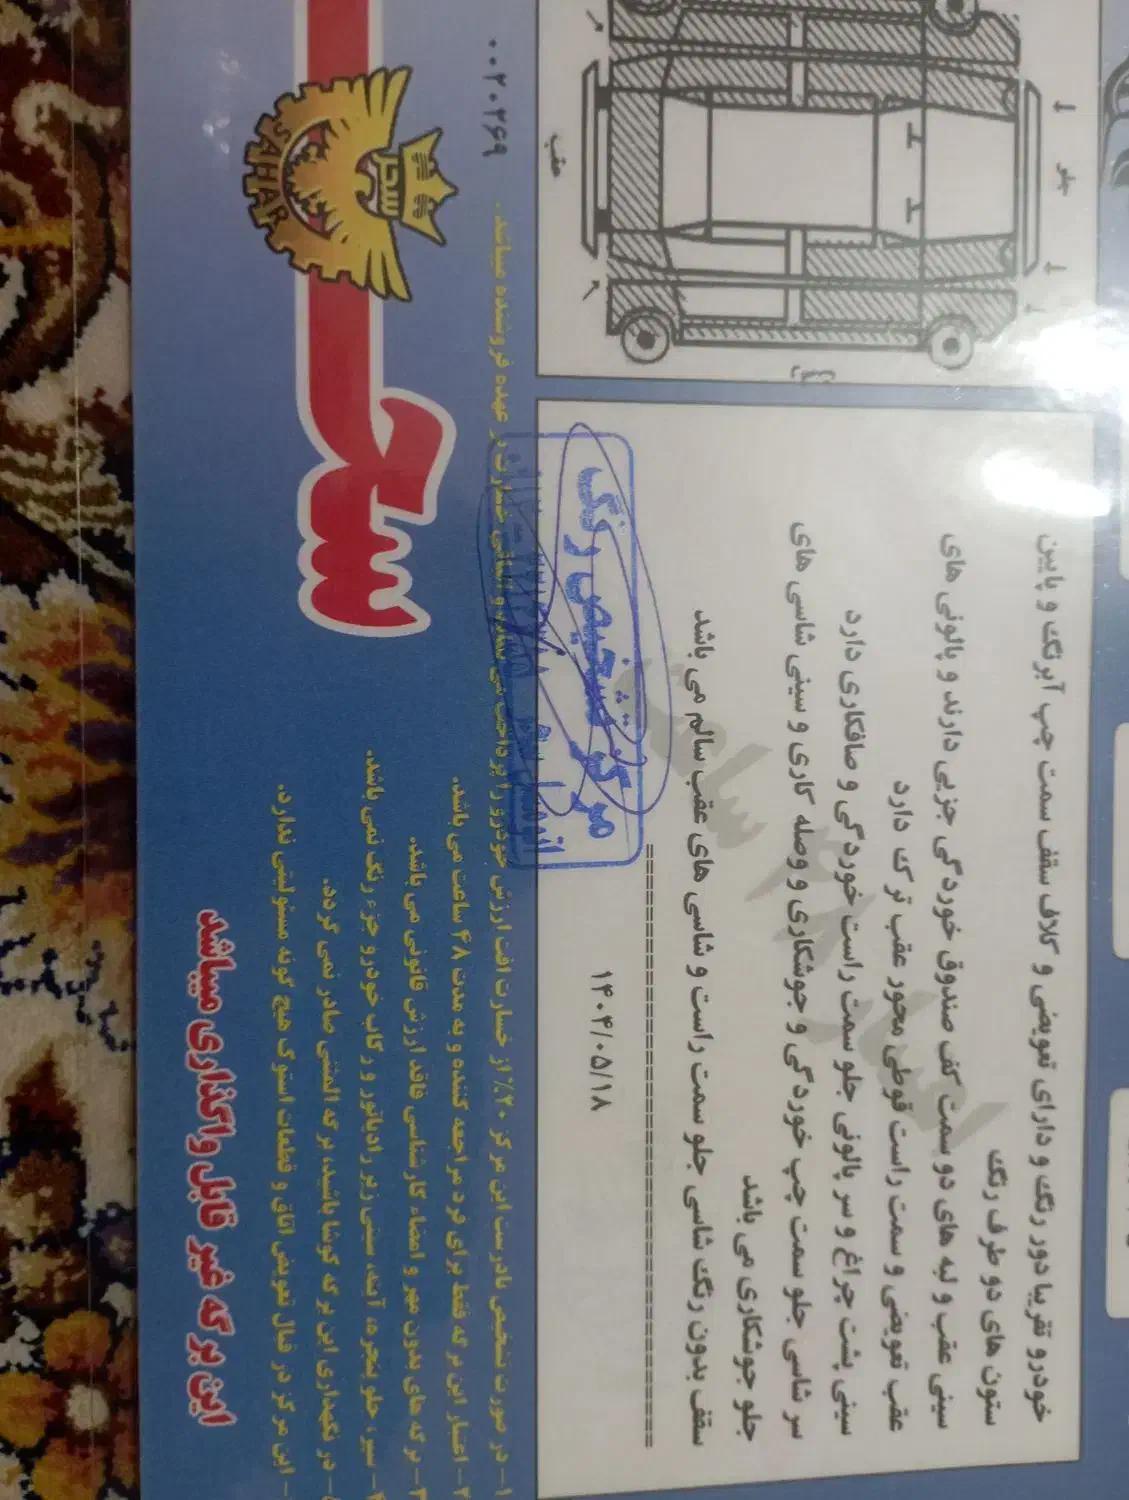 جلو
عقب
۰۰۲۰۲۶۹
خودرو تقریبا دور رنگ و دارای تعویضی و کلاف سقف سمت چپ آبرنگ و پایین
ستون های دو طرف رنگ
سینی عقب و لبه های دو سمت کف صندوق خوردگی جزیی دارند و پالونی های
عقب تعویضی و سمت راست قوطی محور عقب ترک دارد
سینی پشت چراغ و سر پالونی جلو سمت راست خوردگی و صافکاری دارد
سر شاسی جلو سمت چپ خوردگی و جوشکاری و وصله کاری و سینی شاسی های
جلو جوشکاری می باشد
سقف بدون رنگ شاسی جلو سمت راست و شاسی های عقب سالم می باشد
=================================
۱۴۰۴/۰۵/۱۸
اعتبار ۴۸ ساعت
مرکز تشخیص رنگ
۱- در صورت تشخیص نادرست این مرکز ۲۰٪ از خسارت افت ارزش خودرو را پرداخت می نماید و الباقی خسارت بر عهده فروشنده میباشد.
۲- اعتبار این برگه فقط برای فرد مراجعه کننده و به مدت ۴۸ ساعت می باشد.
۳- برگه های بدون مهر و امضاء کارشناسی فاقد ارزش قانونی می باشد.
۴- سپر، جلو پنجره، آینه، سینی زیر رادیاتور و رکاب خودرو جزء رنگ نمی باشد.
- در نگهداری این برگه کوشا باشید، برگه المثنی صادر نمی گردد.
- این مرکز در قبال تعویض اتاق و قطعات استوک هیچ گونه مسئولیتی ندارد.
این برگه غیر قابل واگذاری میباشد
سحر
سحر
SAHAR